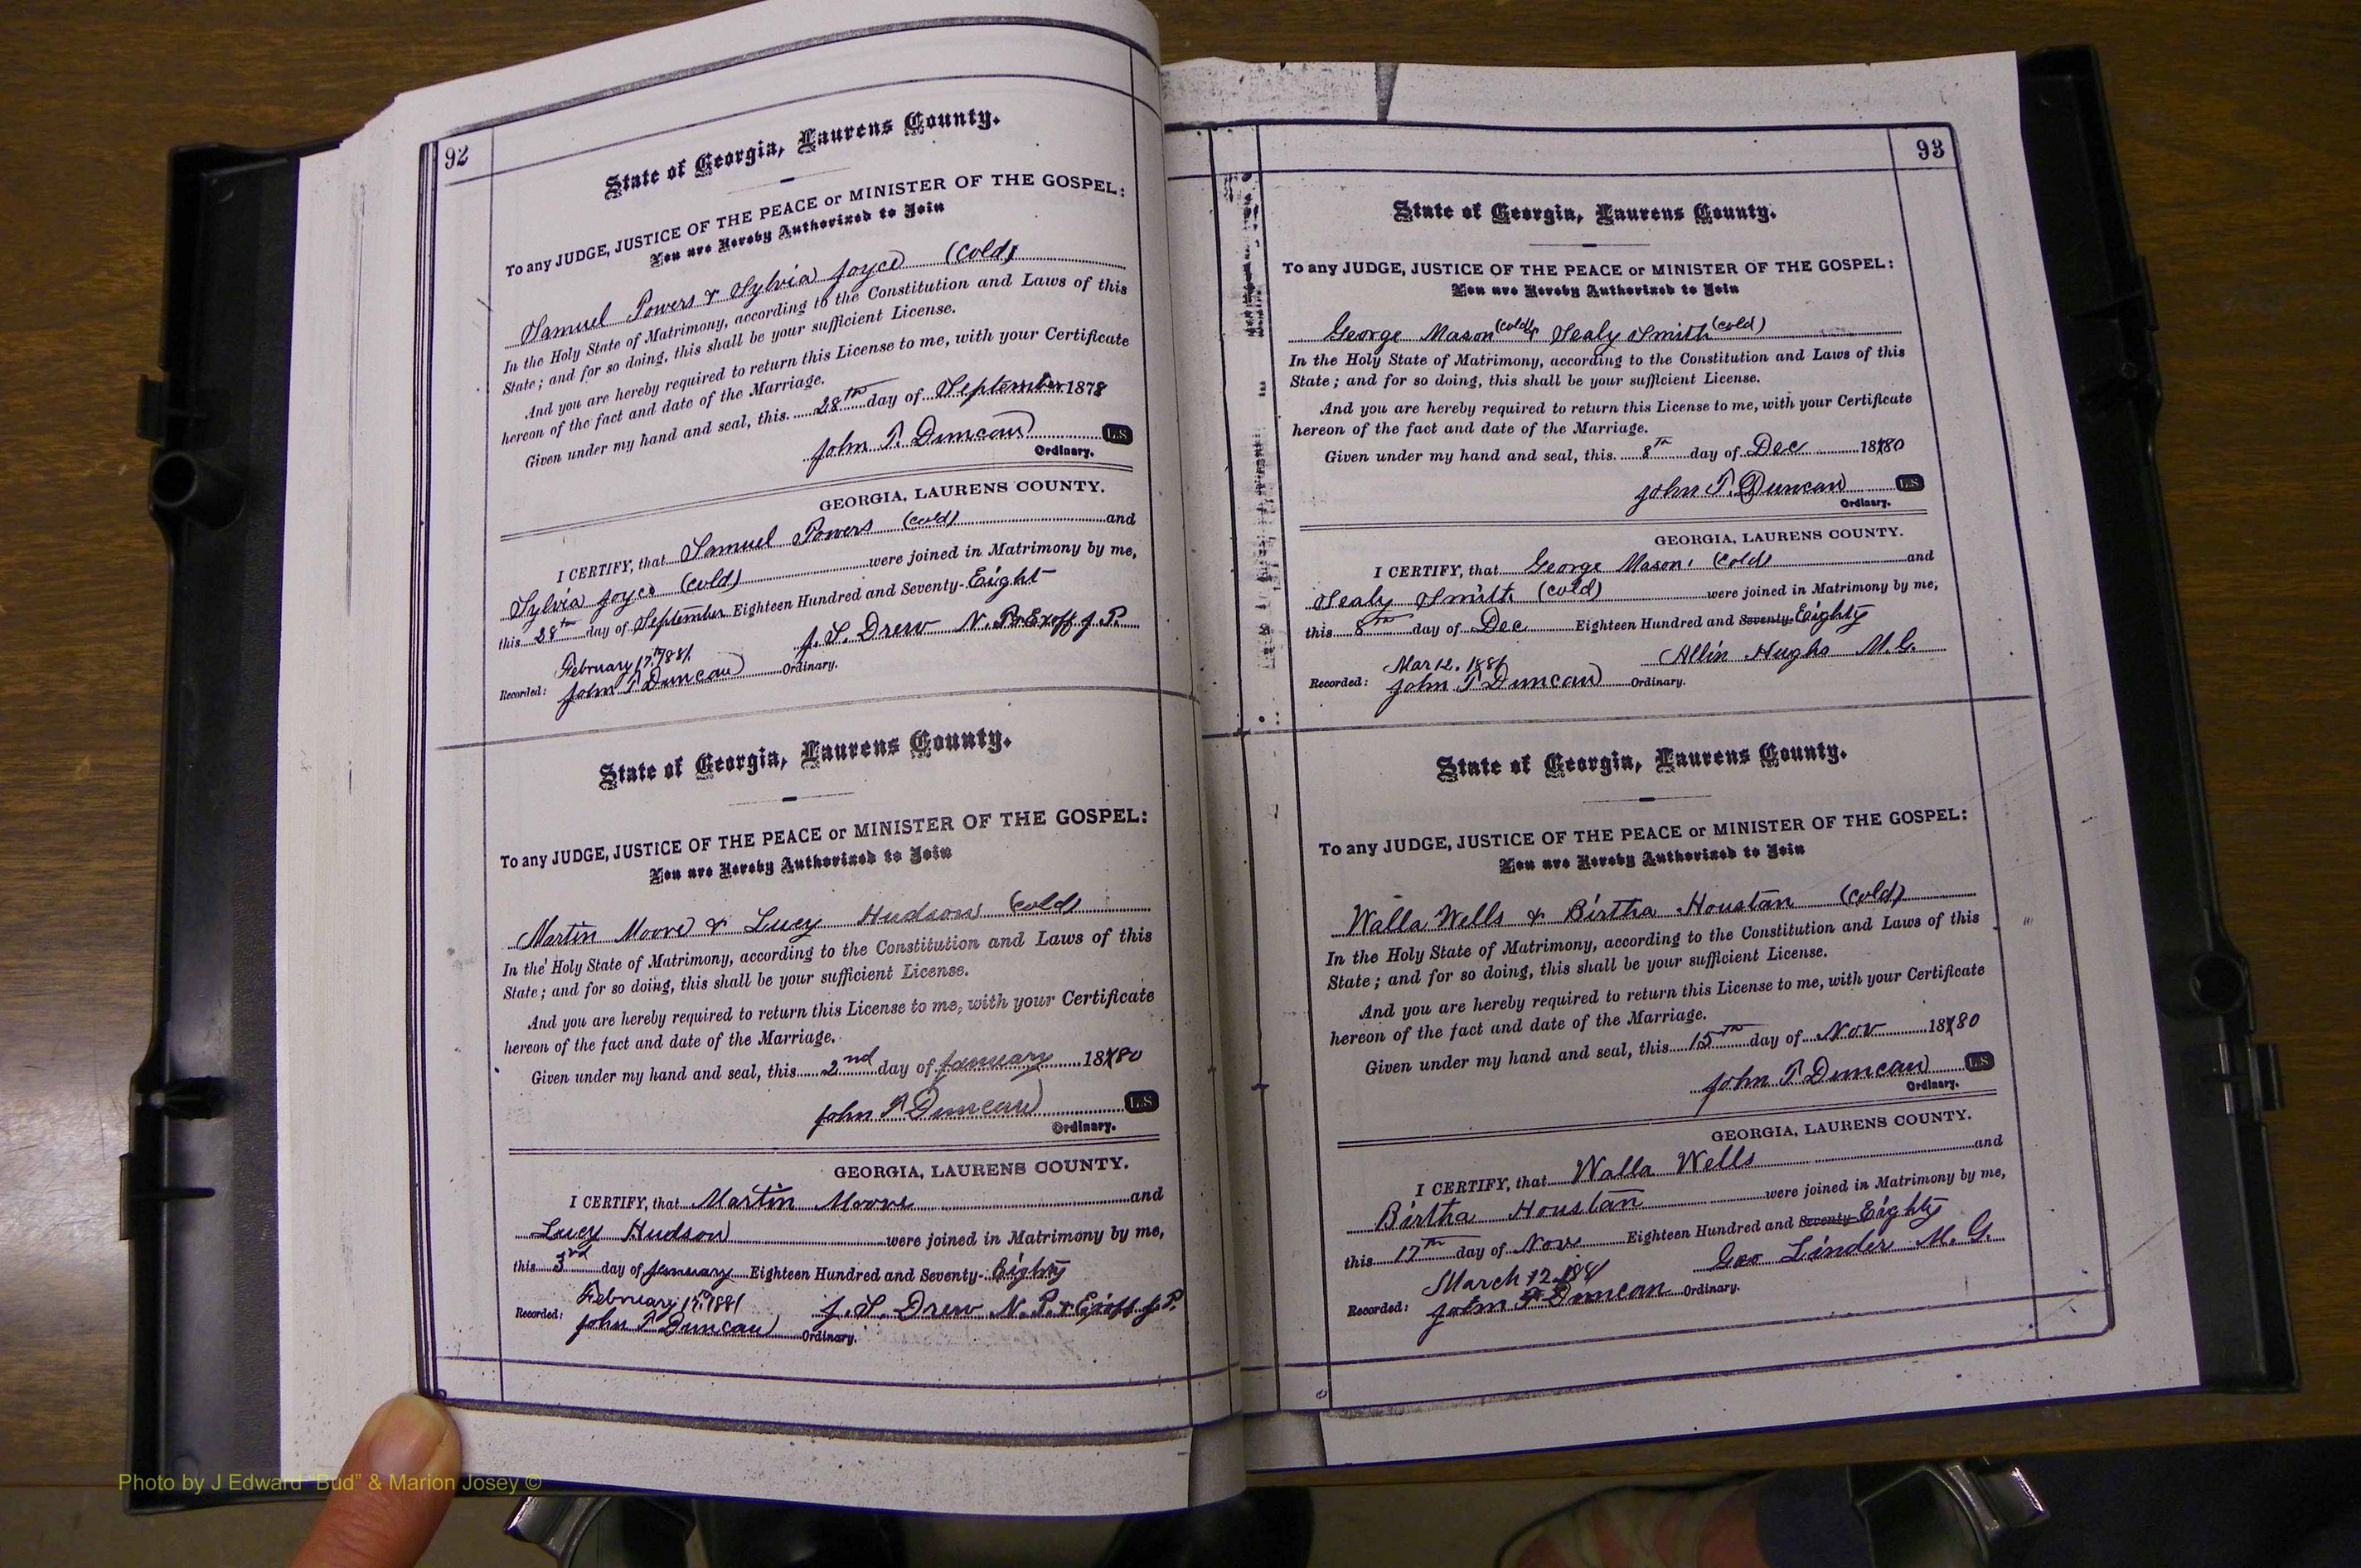 92
State of Georgia, Laurens County.
To any JUDGE, JUSTICE OF THE PEACE or MINISTER OF THE GOSPEL:
You are Hereby Authorized to Join
Samuel Powers & Sylvia Joyce (Cold)
In the Holy State of Matrimony, according to the Constitution and Laws of this
State; and for so doing, this shall be your sufficient License.
And you are hereby required to return this License to me, with your Certificate
hereon of the fact and date of the Marriage.
Given under my hand and seal, this 28th day of September 1878
John T. Duncan L.S
Ordinary.
GEORGIA, LAURENS COUNTY.
I CERTIFY, that Samuel Powers (Cold) and
Sylvia Joyce (Cold) were joined in Matrimony by me,
this 28th day of September Eighteen Hundred and Seventy-Eight
J. S. Drew N. P. & Exoff J. P.
February 17th, 1881
Recorded: John T Duncan Ordinary.
State of Georgia, Laurens County.
To any JUDGE, JUSTICE OF THE PEACE or MINISTER OF THE GOSPEL:
You are Hereby Authorized to Join
Martin Moore & Lucy Hudson (Cold)
In the Holy State of Matrimony, according to the Constitution and Laws of this
State; and for so doing, this shall be your sufficient License.
And you are hereby required to return this License to me, with your Certificate
hereon of the fact and date of the Marriage.
Given under my hand and seal, this 2nd day of January 18780
John T Duncan L.S
Ordinary.
GEORGIA, LAURENS COUNTY.
I CERTIFY, that Martin Moore and
Lucy Hudson were joined in Matrimony by me,
this 3rd day of January Eighteen Hundred and Seventy- Eighty
February 17th, 1881 J. S. Drew N. P. & Exoff J. P.
Recorded: John T Duncan Ordinary.
93
State of Georgia, Laurens County.
To any JUDGE, JUSTICE OF THE PEACE or MINISTER OF THE GOSPEL:
You are Hereby Authorized to Join
George Mason (Cold) & Sealy Smith (Cold)
In the Holy State of Matrimony, according to the Constitution and Laws of this
State; and for so doing, this shall be your sufficient License.
And you are hereby required to return this License to me, with your Certificate
hereon of the fact and date of the Marriage.
Given under my hand and seal, this 8th day of Dec 18780
John T. Duncan L.S
Ordinary.
GEORGIA, LAURENS COUNTY.
I CERTIFY, that George Mason (Cold) and
Sealy Smith (Cold) were joined in Matrimony by me,
this 8th day of Dec Eighteen Hundred and Seventy- Eighty
Allin Hughs M.G.
Mar 12. 1881
Recorded: John T Duncan Ordinary.
State of Georgia, Laurens County.
To any JUDGE, JUSTICE OF THE PEACE or MINISTER OF THE GOSPEL:
You are Hereby Authorized to Join
Walla Wells & Birtha Houstan (Cold)
In the Holy State of Matrimony, according to the Constitution and Laws of this
State; and for so doing, this shall be your sufficient License.
And you are hereby required to return this License to me, with your Certificate
hereon of the fact and date of the Marriage.
Given under my hand and seal, this 15th day of Nov 18780
John T Duncan L.S
Ordinary.
GEORGIA, LAURENS COUNTY.
I CERTIFY, that Walla Wells and
Birtha Houstan were joined in Matrimony by me,
this 17th day of Nov Eighteen Hundred and Seventy- Eighty
Geo Linder M. G.
March 12. 1881
Recorded: John T Duncan Ordinary.
Photo by J Edward "Bud" & Marion Josey ©